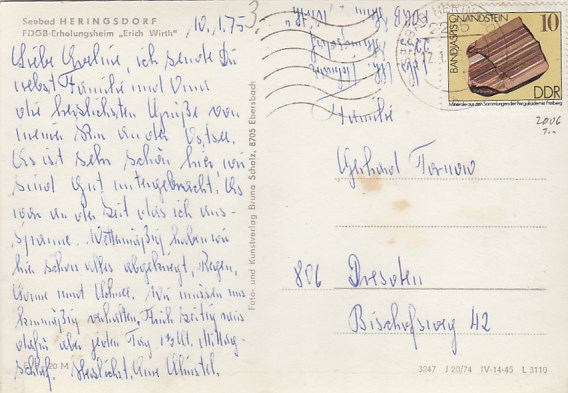 Seebad HERINGSDORF
FDGB-Erholungsheim „Erich Wirth"
10.1.75
Liebe Eveline, ich sende Dir
nebst Familie und
die herzlichsten Grüße von
meiner an der Ostsee.
Es ist sehr schön hier, wir
sind gut untergebracht. Es
war an der Zeit das ich aus-
spanne. Wettermäßig haben wir
hier schon alles abgekriegt, Regen,
Sonne und Wir müssen uns
verhalten,
dafür aber jeden Tag Mittag-
schlaf. Herzlichst, Eure
20 M
Foto- und Kunstverlag Bruno Scholz, 8705 Ebersbach
FDGB „Erich Wirth"
2255
Familie
Gerhard Tornow
806 Dresden
Bischofsweg 42
BANDJASPIS GNANDSTEIN
10
DDR
Minerale aus den Sammlungen der Bergakademie Freiberg
2006
1.-
3247 J 20/74 IV-14-45 L 3110